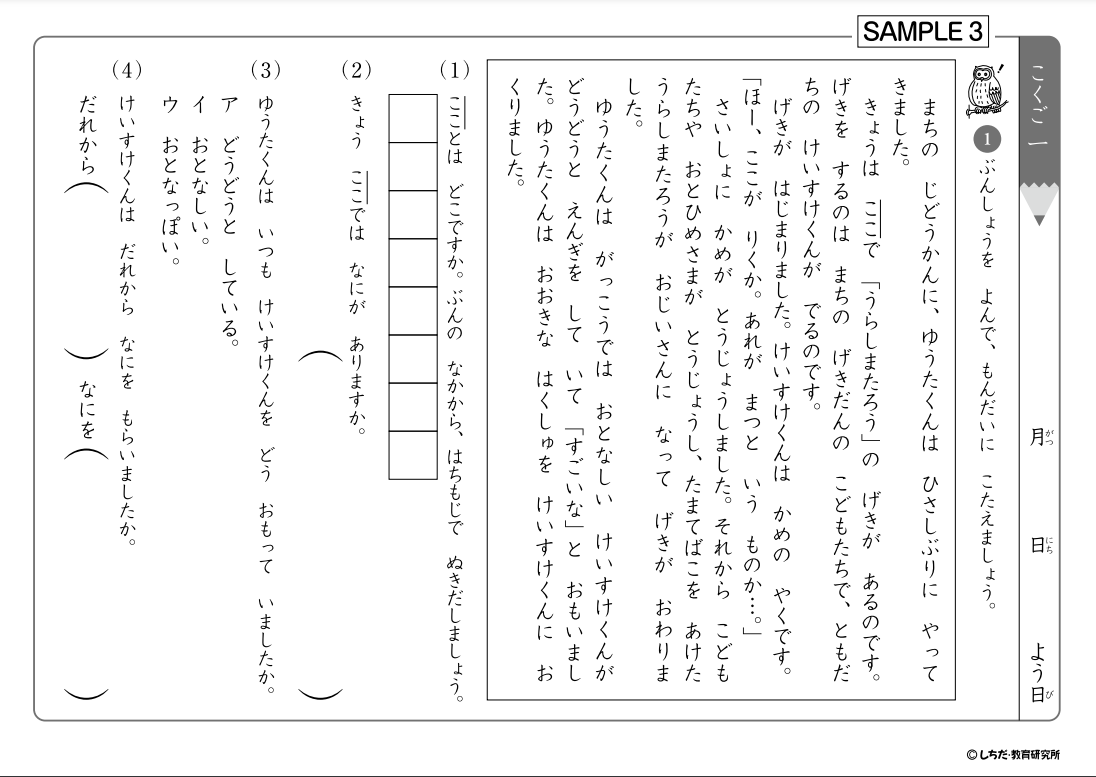 SAMPLE 3
こくご 一
月 がつ
日 にち
よう日 び
1 ぶんしょうを よんで、もんだいに こたえましょう。
まちの じどうかんに、ゆうたくんは ひさしぶりに やって
きました。
きょうは ここで 「うらしまたろう」の げきが あるのです。
げきを するのは まちの げきだんの こどもたちで、ともだ
ちの けいすけくんが でるのです。
げきが はじまりました。けいすけくんは かめの やくです。
「ほー、ここが りくか。あれが まつと いう ものか…。」
さいしょに かめが とうじょうしました。それから こども
たちや おとひめさまが とうじょうし、たまてばこを あけた
うらしまたろうが おじいさんに なって げきが おわりま
した。
ゆうたくんは がっこうでは おとなしい けいすけくんが
どうどうと えんぎを して いて 「すごいな」と おもいまし
た。ゆうたくんは おおきな はくしゅを けいすけくんに お
くりました。
(1) ここ とは どこですか。ぶんの なかから、はちもじで ぬきだしましょう。
(2) きょう ここでは なにが ありますか。
( )
(3) ゆうたくんは いつも けいすけくんを どう おもって いましたか。
ア どうどうと している。
イ おとなしい。
ウ おとなっぽい。
( )
(4) けいすけくんは だれから なにを もらいましたか。
だれから( ) なにを( )
©しちだ・教育研究所